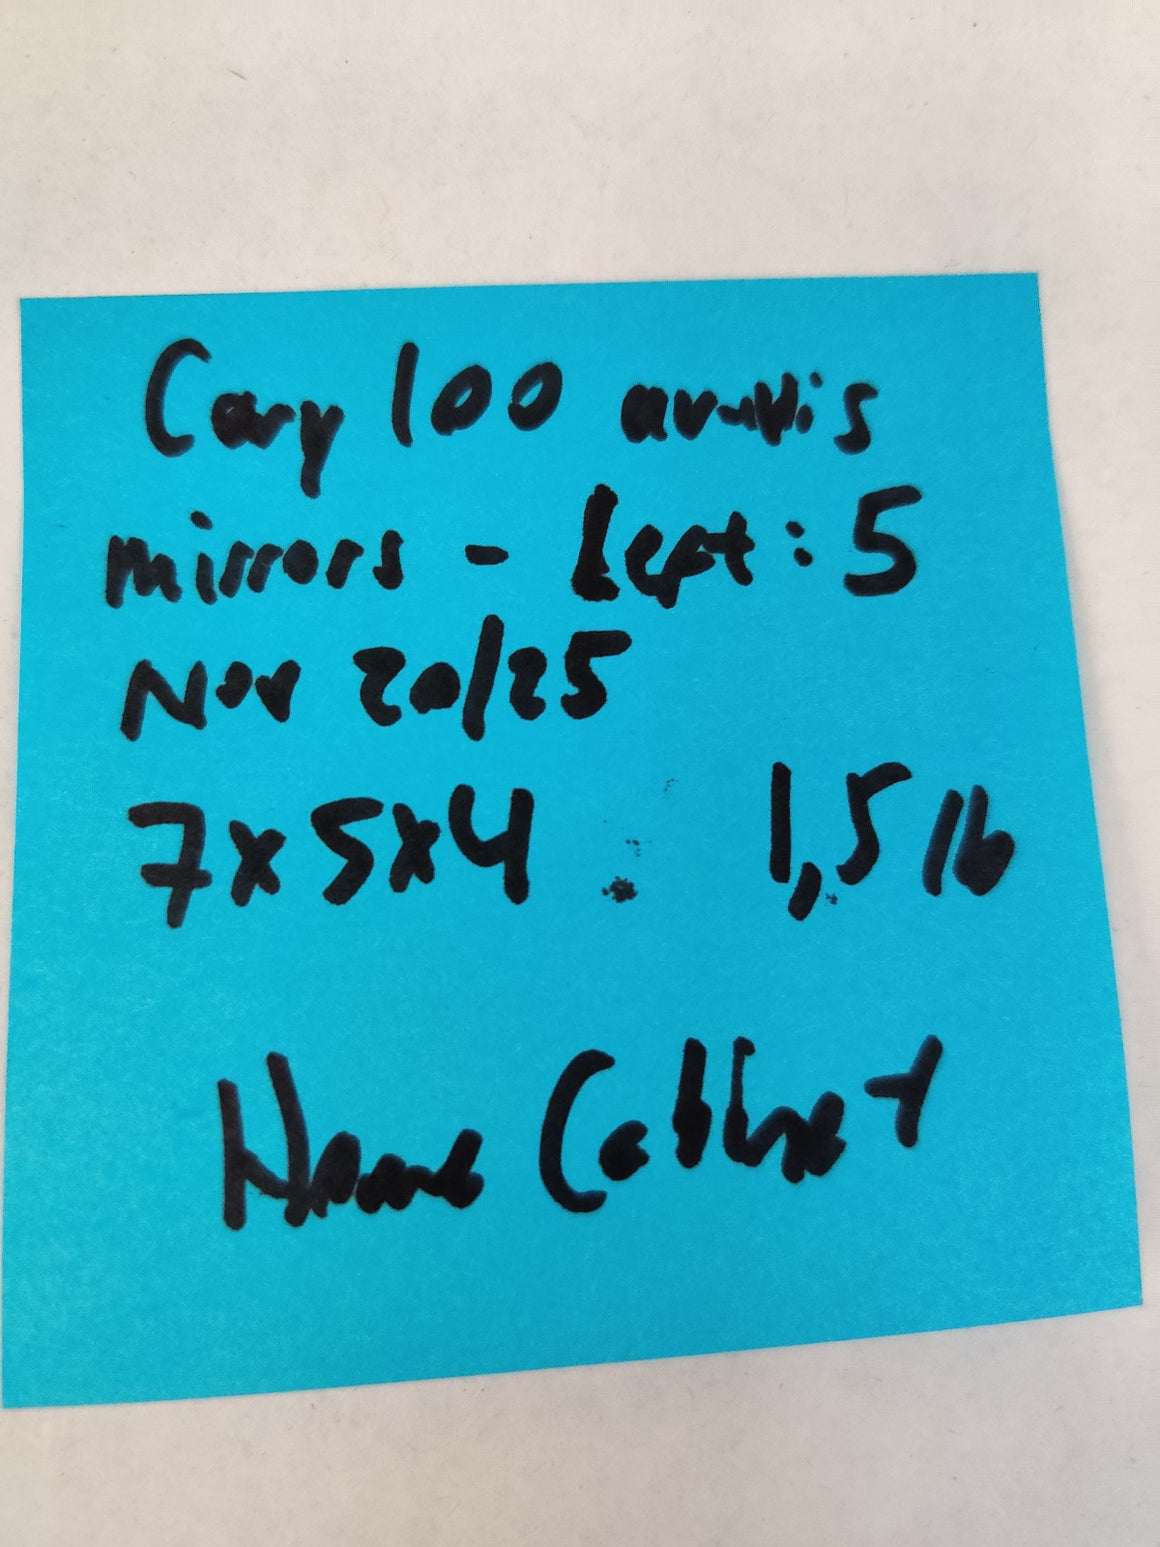 Cary 100 uv-vis
mirrors - Left: 5
Nov 20/25
7x5x4 1,5 lb
Home Cabinet